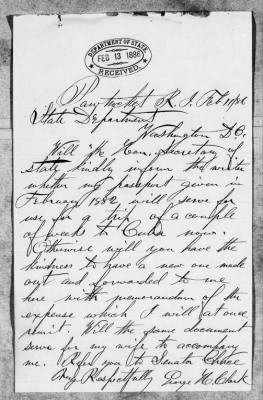 DEPARTMENT OF STATE
FEB 13 1886
RECEIVED.
Pawtucket R. I. Feb 11/86
State Department
Washington D.C.
Will the Hon. Secretary of
State kindly inform the writer
whether my passport given in
February 1882, will serve for
use for a trip of a couple
of weeks to Cuba now.
Otherwise will you have the
kindness to have a new one made
out and forwarded to me
here with memorandum of the
expense which I will at once
remit. Will the same document
serve for my wife to accompany
me. Refer you to Senator Chace
Very Respectfully George H. Clark